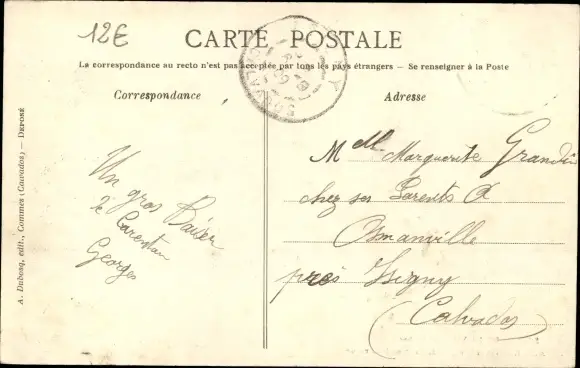 12E
CARTE POSTALE
La correspondance au recto n'est pas acceptée par tous les pays étrangers — Se renseigner à la Poste
Correspondance
Adresse
A. Dubosq, edit., Commes (Calvados) — DÉPOSÉ
Un gros Baiser
De Carentan
Georges
Melle Marguerite Grandin
chez ses Parents à
Osmanville
près Isigny
(Calvados)
CALVADOS